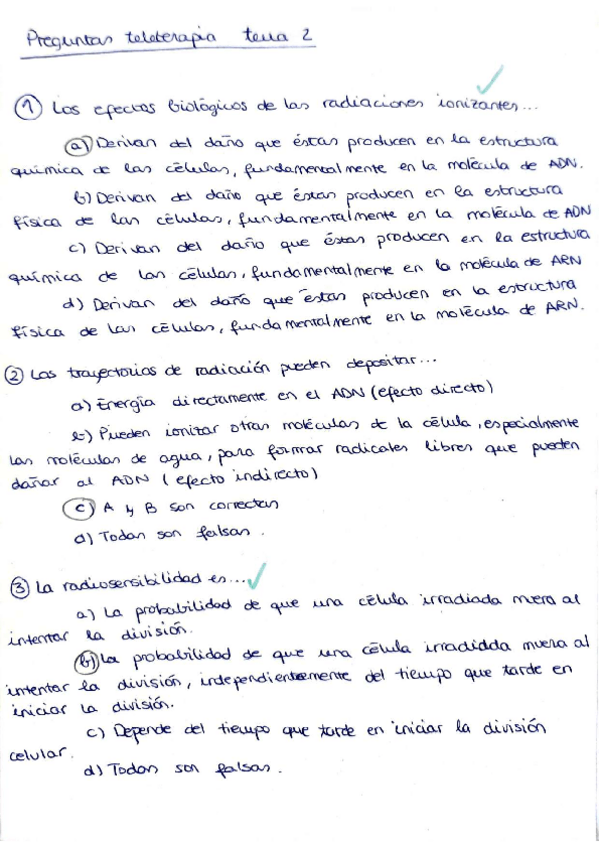 Preguntas teleterapia tema 2
① Los efectos biológicos de las radiaciones ionizantes...
a) Derivan del daño que éstas producen en la estructura
química de las células, fundamentalmente en la molécula de ADN.
b) Derivan del daño que éstas producen en la estructura
física de las células, fundamentalmente en la molécula de ADN
c) Derivan del daño que éstas producen en la estructura
química de las células, fundamentalmente en la molécula de ARN
d) Derivan del daño que éstas producen en la estructura
física de las células, fundamentalmente en la molécula de ARN.
② Las trayectorias de radiación pueden depositar...
a) Energía directamente en el ADN (efecto directo)
b) Pueden ionizar otras moléculas de la célula, especialmente
las moléculas de agua, para formar radicales libres que pueden
dañar al ADN (efecto indirecto)
c) A y B son correctas
d) Todas son falsas.
③ La radiosensibilidad es...
a) La probabilidad de que una célula irradiada muera al
intentar la división.
b) La probabilidad de que una célula irradiada muera al
intentar la división, independientemente del tiempo que tarde en
iniciar la división.
c) Depende del tiempo que tarde en iniciar la división
celular.
d) Todas son falsas.